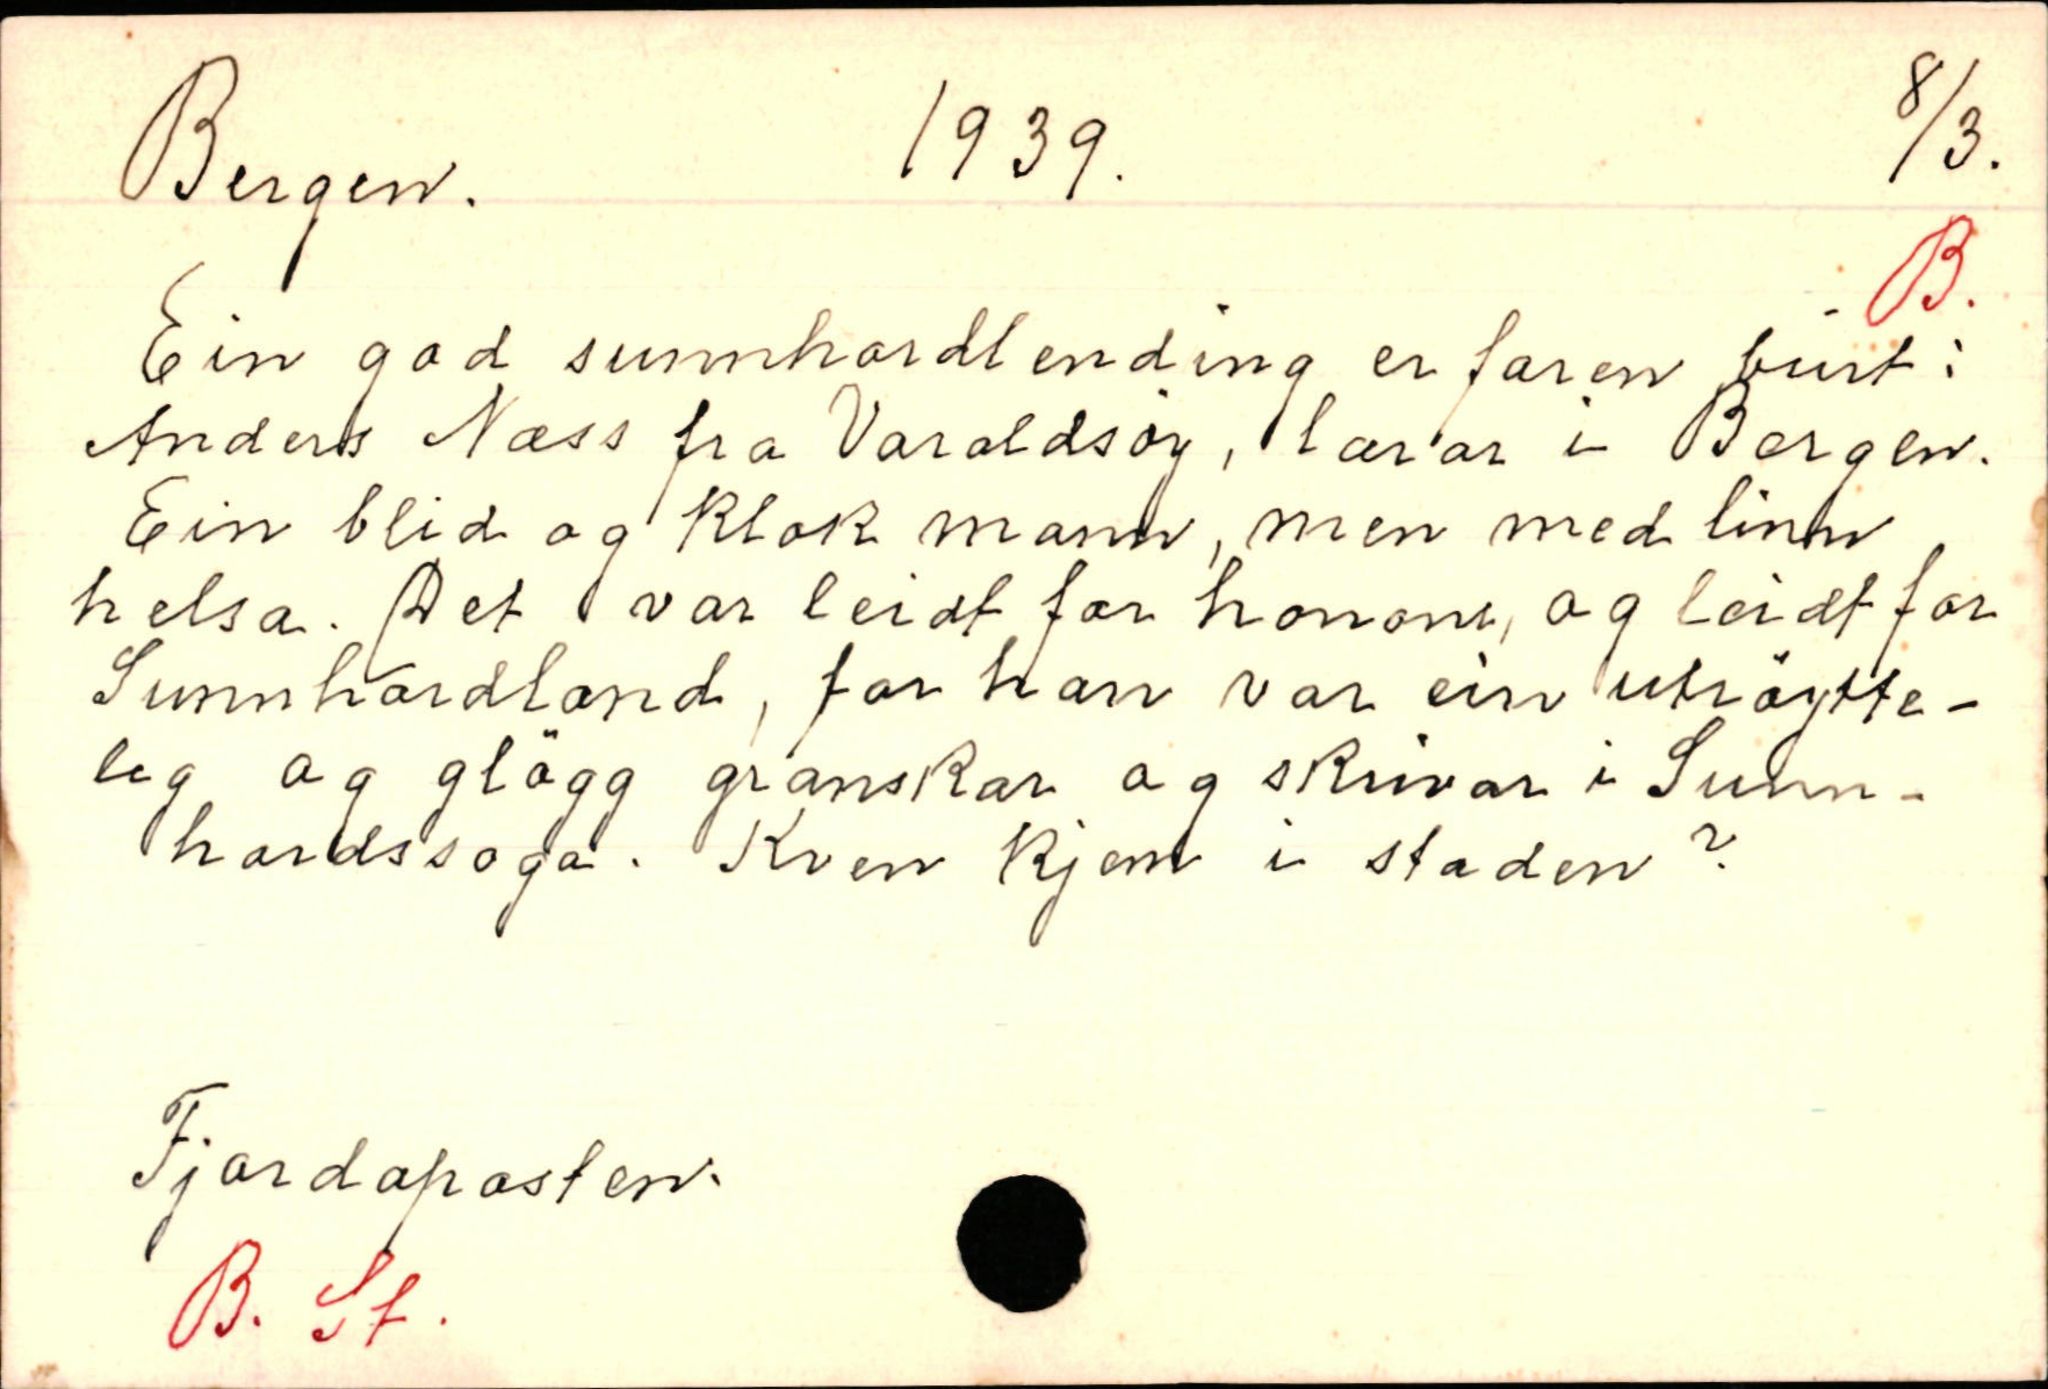 Bergen. 1939. 8/3.
B.
Ein god sunnhordlending er faren burt:
Anders Næss fra Varaldsöy, lærar i Bergen.
Ein blid og klok mann, men med linn
helsa. Det var leidt for honom, og leidt for
Sunnhordland, for han var ein utröytte-
leg og glögg granskar og skrivar i Sunn-
hordssoga. Kven kjem i staden?
Fjordaposten.
B. St.